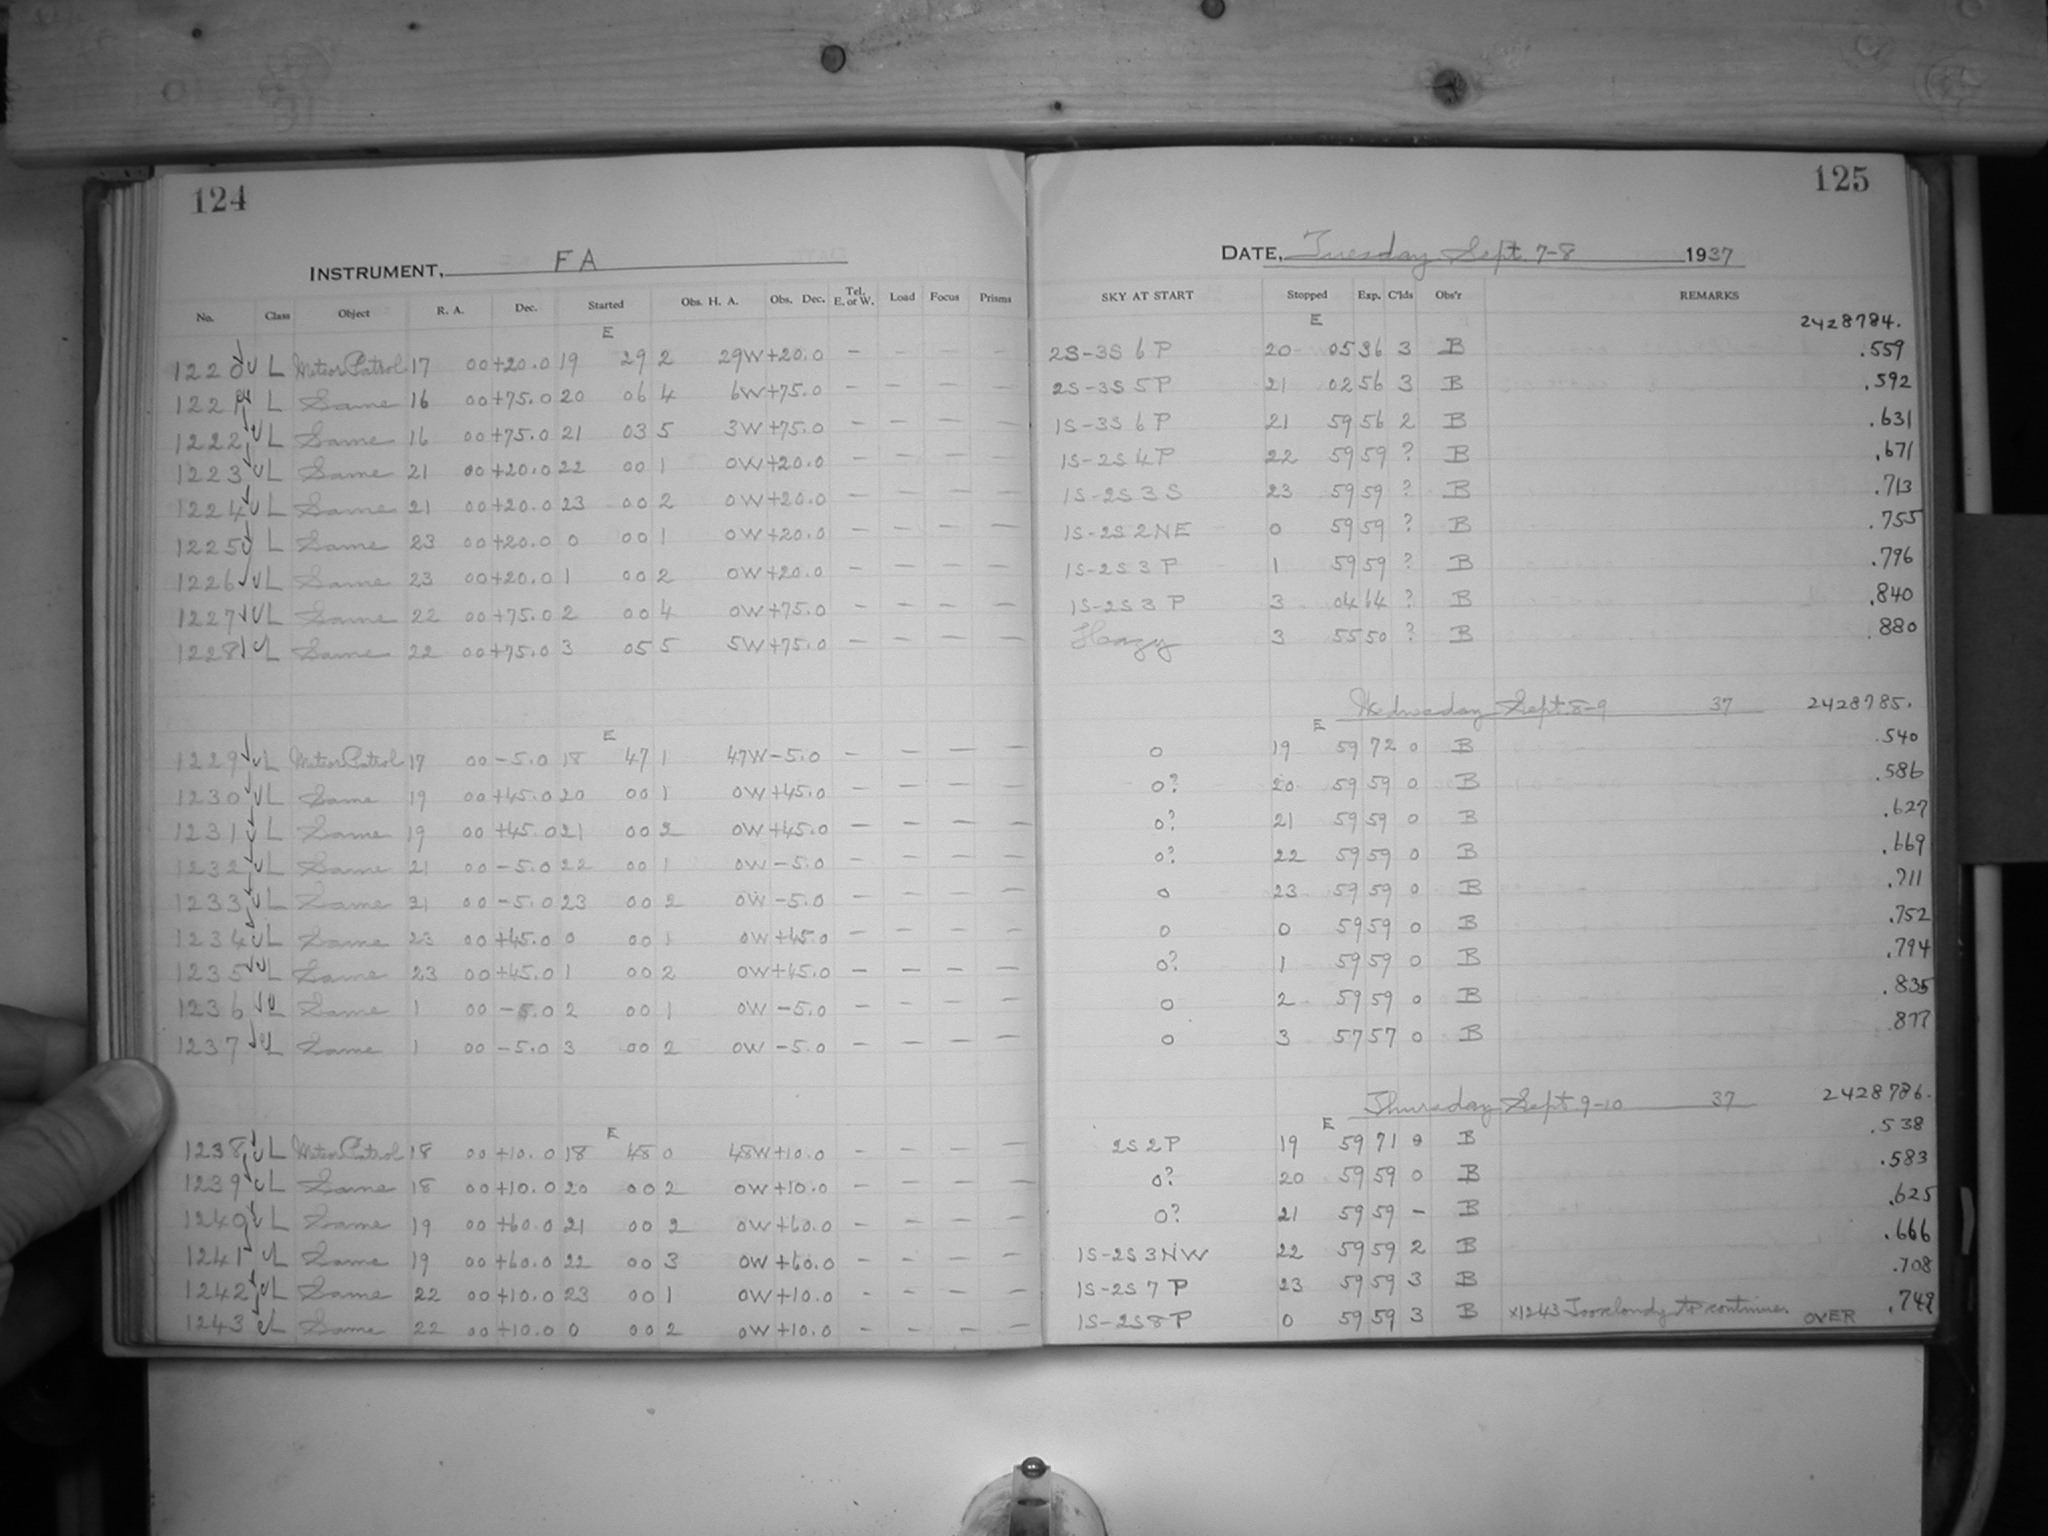 124
INSTRUMENT, FA
No. Class Object R. A. Dec. Started Obs. H. A. Obs. Dec. Tel. E. or W. Load Focus Prisms
E
1220 L Meteor Patrol 17 00 +20.0 19 29 2 29W +20.0 - - - -
122 L Same 16 00 +75.0 20 06 4 6W +75.0 - - - -
1222 L Same 16 00 +75.0 21 03 5 3W +75.0 - - - -
1223 L Same 21 00 +20.0 22 00 1 0W +20.0 - - - -
1224 L Same 21 00 +20.0 23 00 2 0W +20.0 - - - -
1225 L Same 23 00 +20.0 0 00 1 0W +20.0 - - - -
1226 L Same 23 00 +20.0 1 00 2 0W +20.0 - - - -
1227 L Same 22 00 +75.0 2 00 4 0W +75.0 - - - -
1228 L Same 22 00 +75.0 3 05 5 5W +75.0 - - - -
E
1229 L Meteor Patrol 17 00 -5.0 18 47 1 47W -5.0 - - - -
1230 L Same 19 00 +45.0 20 00 1 0W +45.0 - - - -
1231 L Same 19 00 +45.0 21 00 2 0W +45.0 - - - -
1232 L Same 21 00 -5.0 22 00 1 0W -5.0 - - - -
1233 L Same 21 00 -5.0 23 00 2 0W -5.0 - - - -
1234 L Same 23 00 +45.0 0 00 1 0W +45.0 - - - -
1235 L Same 23 00 +45.0 1 00 2 0W +45.0 - - - -
1236 L Same 1 00 -5.0 2 00 1 0W -5.0 - - - -
1237 L Same 1 00 -5.0 3 00 2 0W -5.0 - - - -
E
1238 L Meteor Patrol 18 00 +10.0 18 48 0 48W +10.0 - - - -
1239 L Same 18 00 +10.0 20 00 2 0W +10.0 - - - -
1240 L Same 19 00 +60.0 21 00 2 0W +60.0 - - - -
1241 L Same 19 00 +60.0 22 00 3 0W +60.0 - - - -
1242 L Same 22 00 +10.0 23 00 1 0W +10.0 - - - -
1243 L Same 22 00 +10.0 0 00 2 0W +10.0 - - - -
125
DATE, Tuesday Sept. 7-8 1937
SKY AT START Stopped Exp. C'lds Obs'r REMARKS
E 2428784.
2S-3S 6 P 20 05 36 3 B .559
2S-3S 5 P 21 02 56 3 B .592
1S-3S 6 P 21 59 56 2 B .631
1S-2S 4 P 22 59 59 ? B .671
1S-2S 3 S 23 59 59 ? B .713
1S-2S 2 NE 0 59 59 ? B .755
1S-2S 3 P 1 59 59 ? B .796
1S-2S 3 P 3 04 64 ? B .840
Hazy 3 55 50 ? B .880
Wednesday Sept. 8-9 37 2428785.
E
0 19 59 72 0 B .540
0? 20 59 59 0 B .586
0? 21 59 59 0 B .627
0? 22 59 59 0 B .669
0 23 59 59 0 B .711
0 0 59 59 0 B .752
0? 1 59 59 0 B .794
0 2 59 59 0 B .835
0 3 57 57 0 B .877
Thursday Sept. 9-10 37 2428786.
E
2S 2 P 19 59 71 0 B .538
0? 20 59 59 0 B .583
0? 21 59 59 - B .625
1S-2S 3 NW 22 59 59 2 B .666
1S-2S 7 P 23 59 59 3 B .708
1S-2S 8 P 0 59 59 3 B x1243 Too cloudy to continue. OVER .749